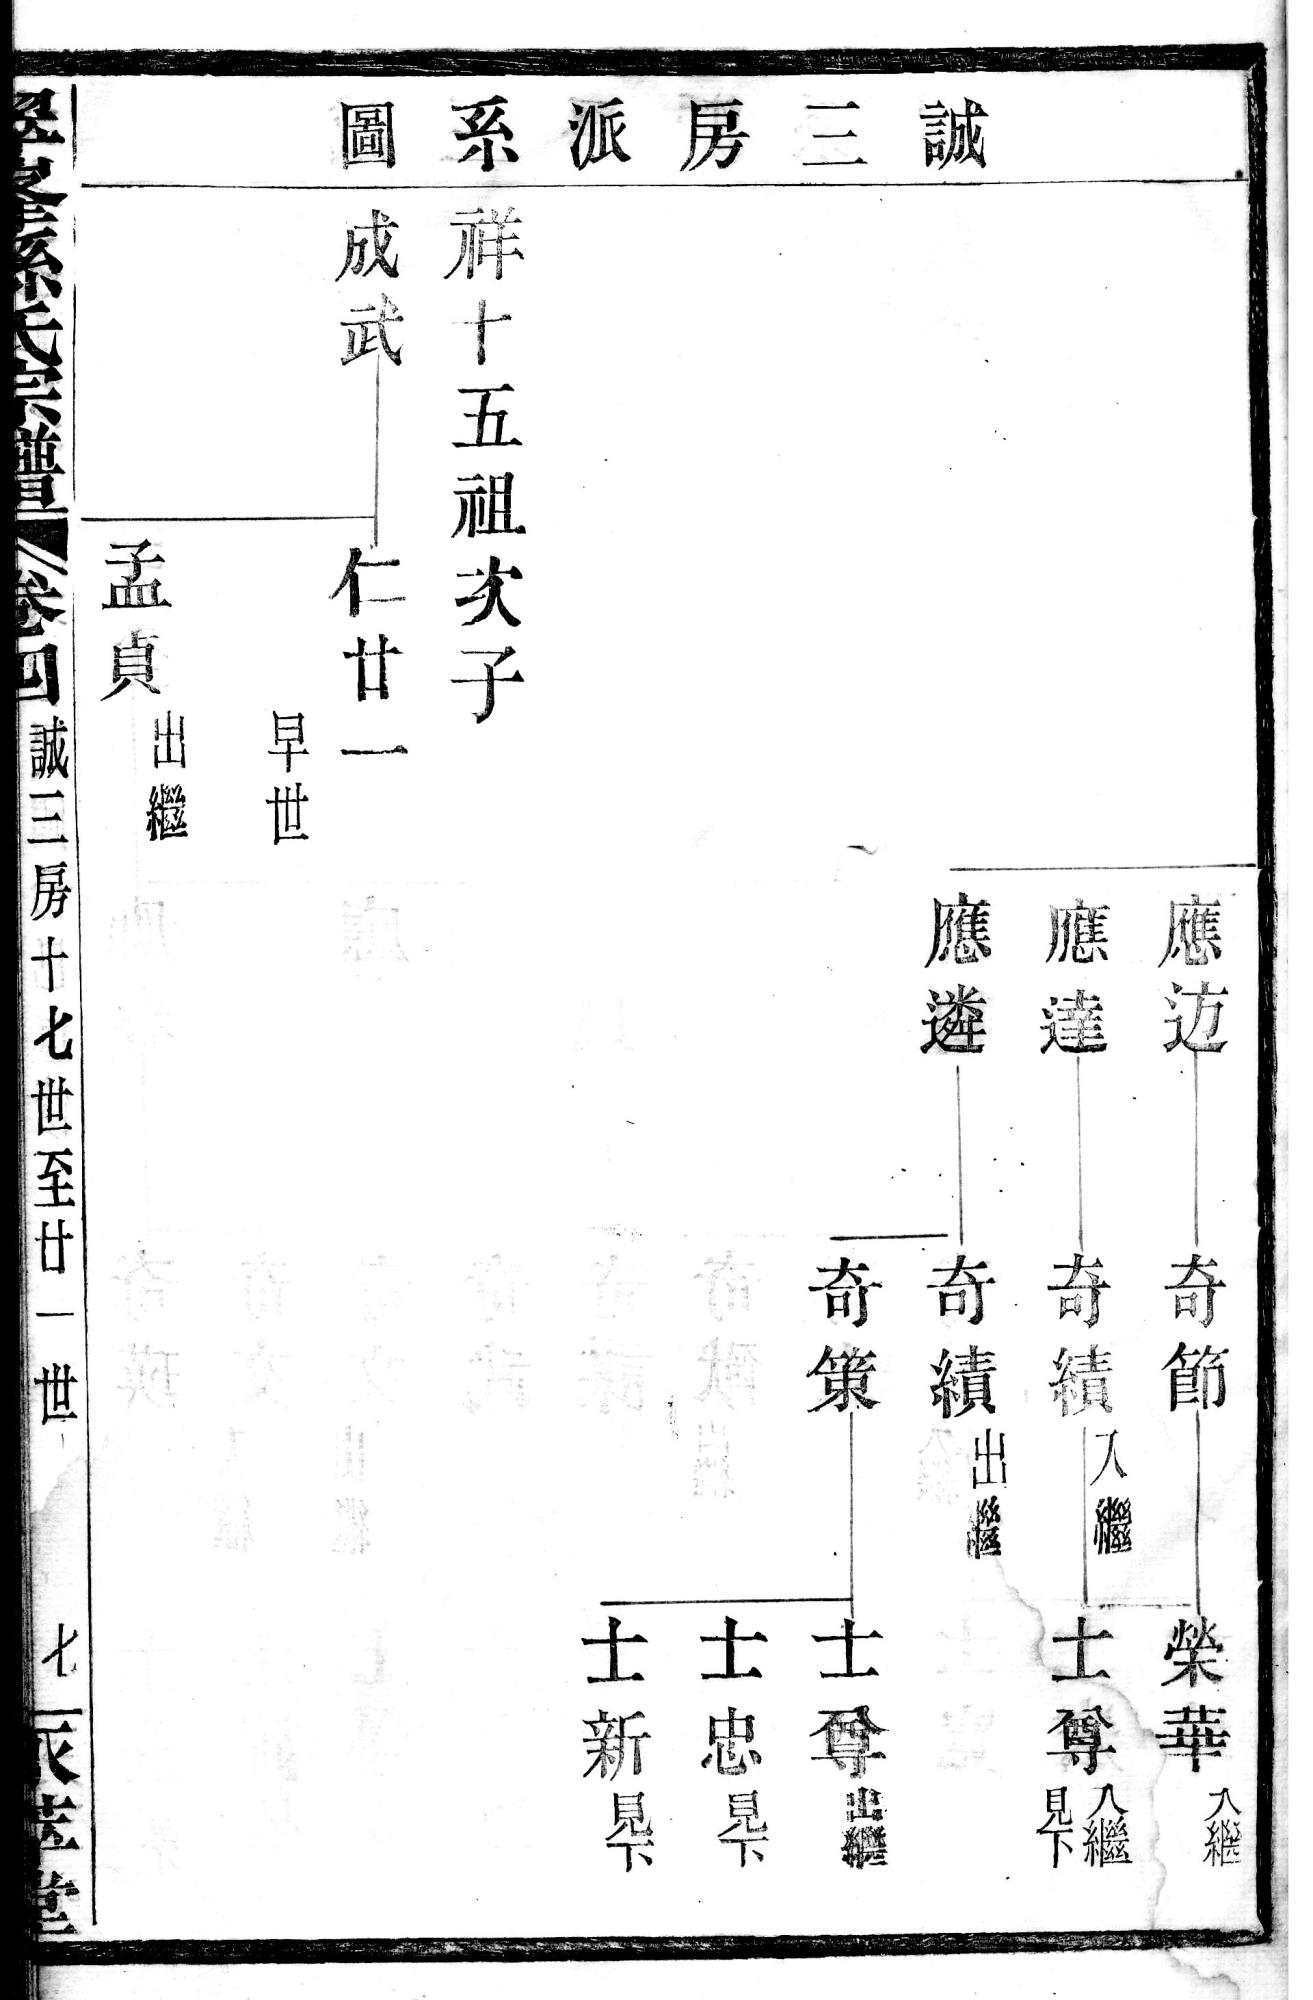 誠三房派系圖
應迈
奇節
榮華
入繼
應達
奇績
入繼
士尊
入繼
見下
應遴
奇績
出繼
奇策
士尊
出繼
士忠
見下
士新
見下
祥十五祖次子
成武
仁廿一
早世
孟貞
出繼
孫氏宗譜
卷四
誠三房十七世至廿一世
七
堂